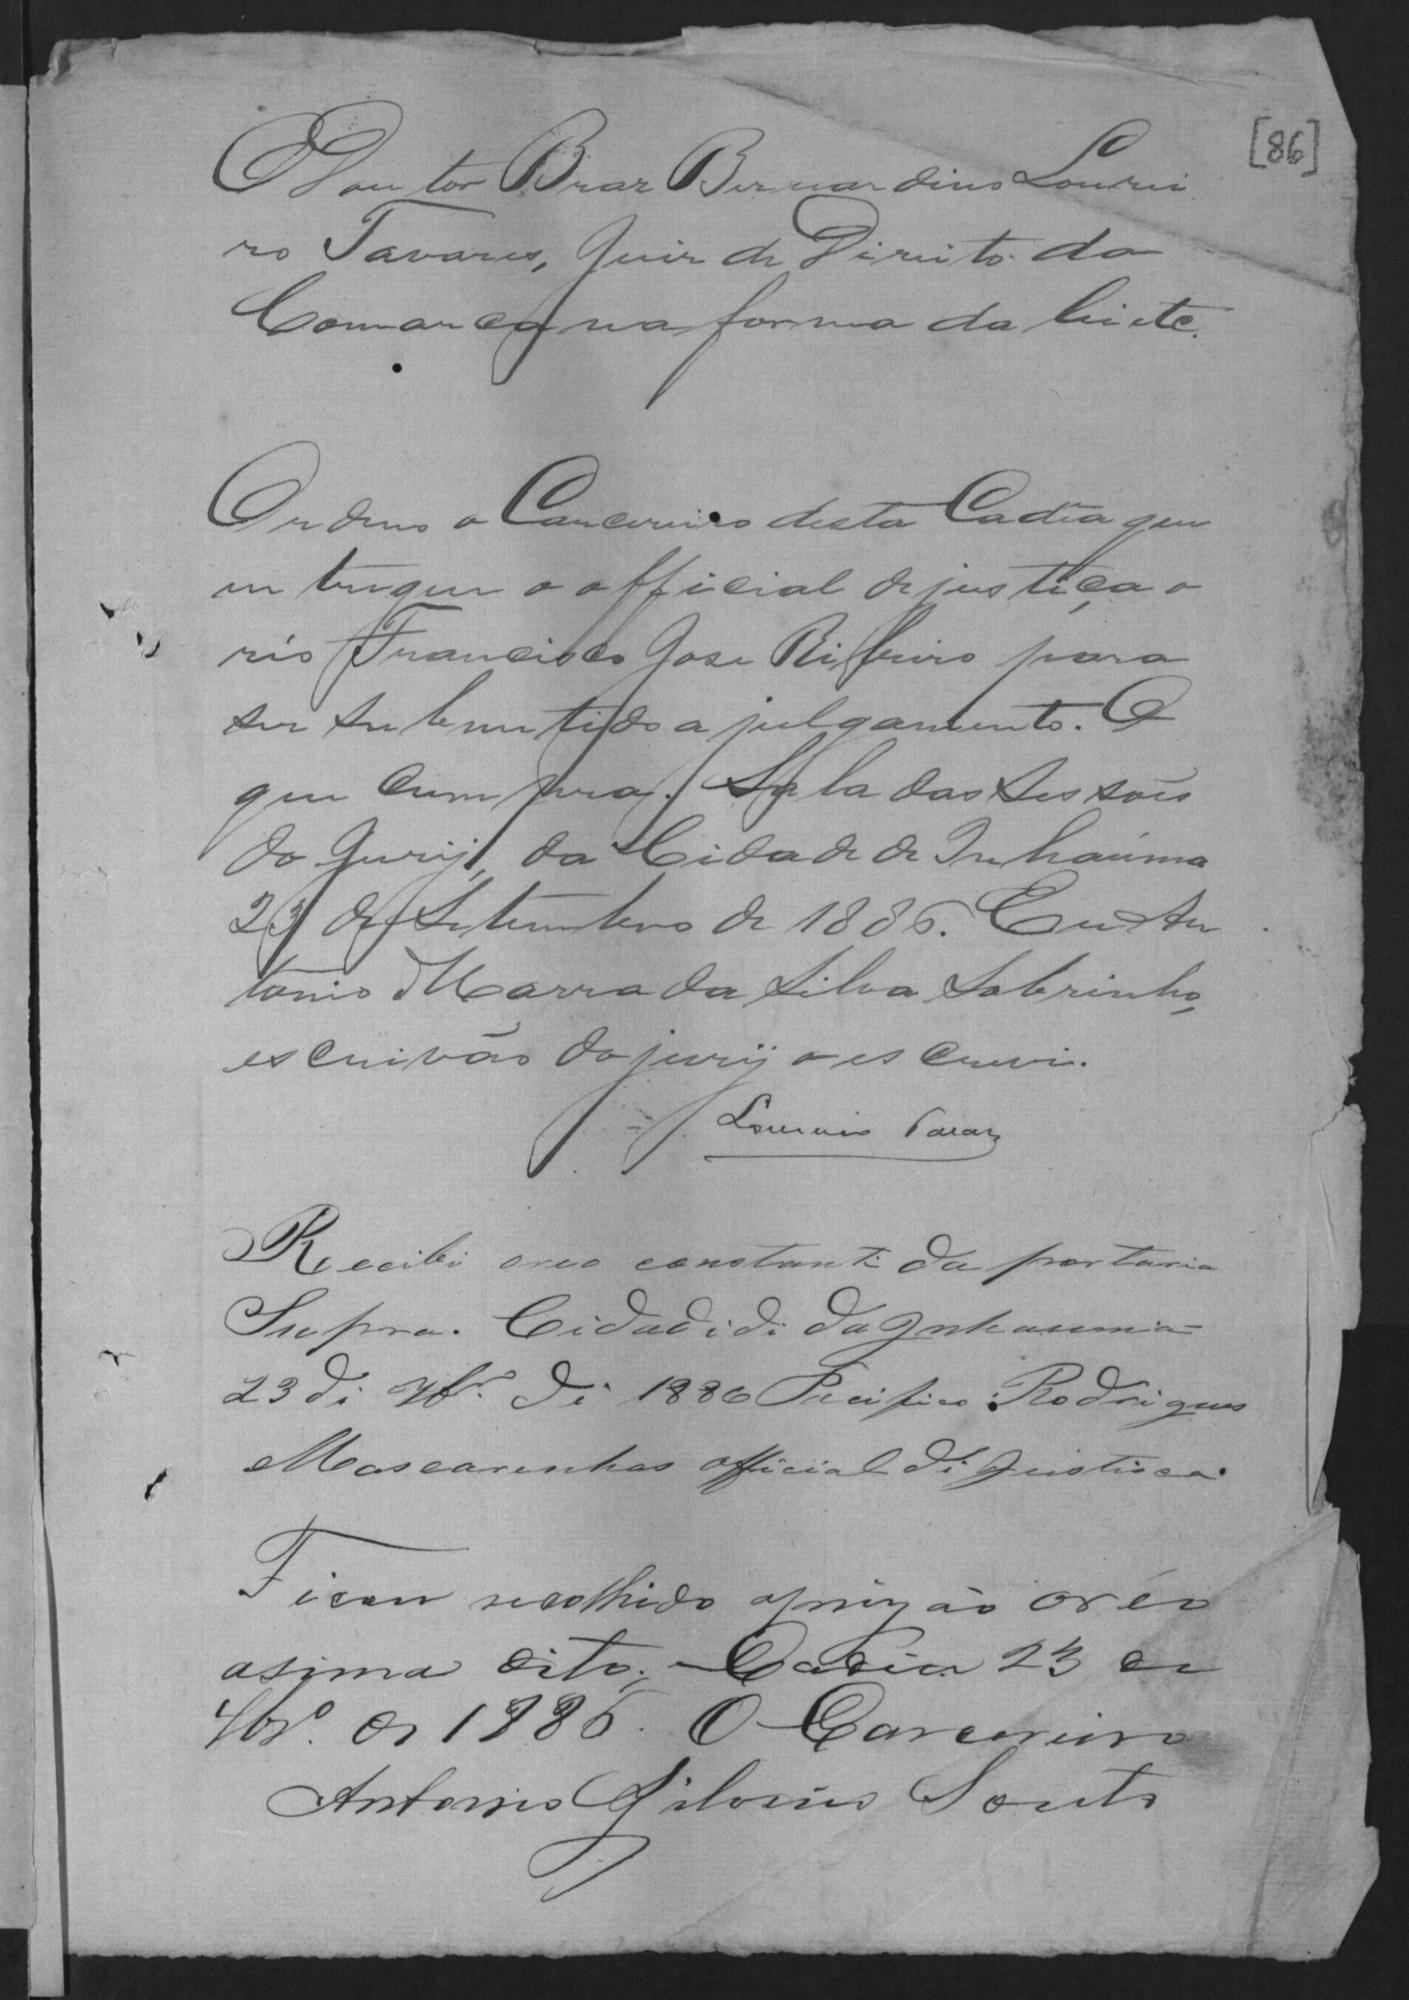 [86]
O Doutor Braz Bernardino Lourei
ro Tavares, Juiz de Direito da
Comarca na forma da lei etc.
Ordeno o Carcereiro desta Cadêa que
entregue o official de justiça o
réo Francisco José Ribeiro para
ser submettido a julgamento. O
que cumpra. Sala das Sessões
do Jury, da Cidade de Inhaúma
23 de Setembro de 1886. Eu An
tonio Marra da Silva Sobrinho,
escrivão do jury o escrevi.
Loureiro Tavares
Recibi oreo constanti da portaria
Supra. Cidadi di da Inhauma
23 di 7br.º di 1886 Pacifico Rodrigues
Mascarenhas official di Justisca.
Ficou recolhido aprizão oréo
asima dito; Cadia 23 de
7br.º de 1886. O Carcereiro
Antonio Silverio Souto